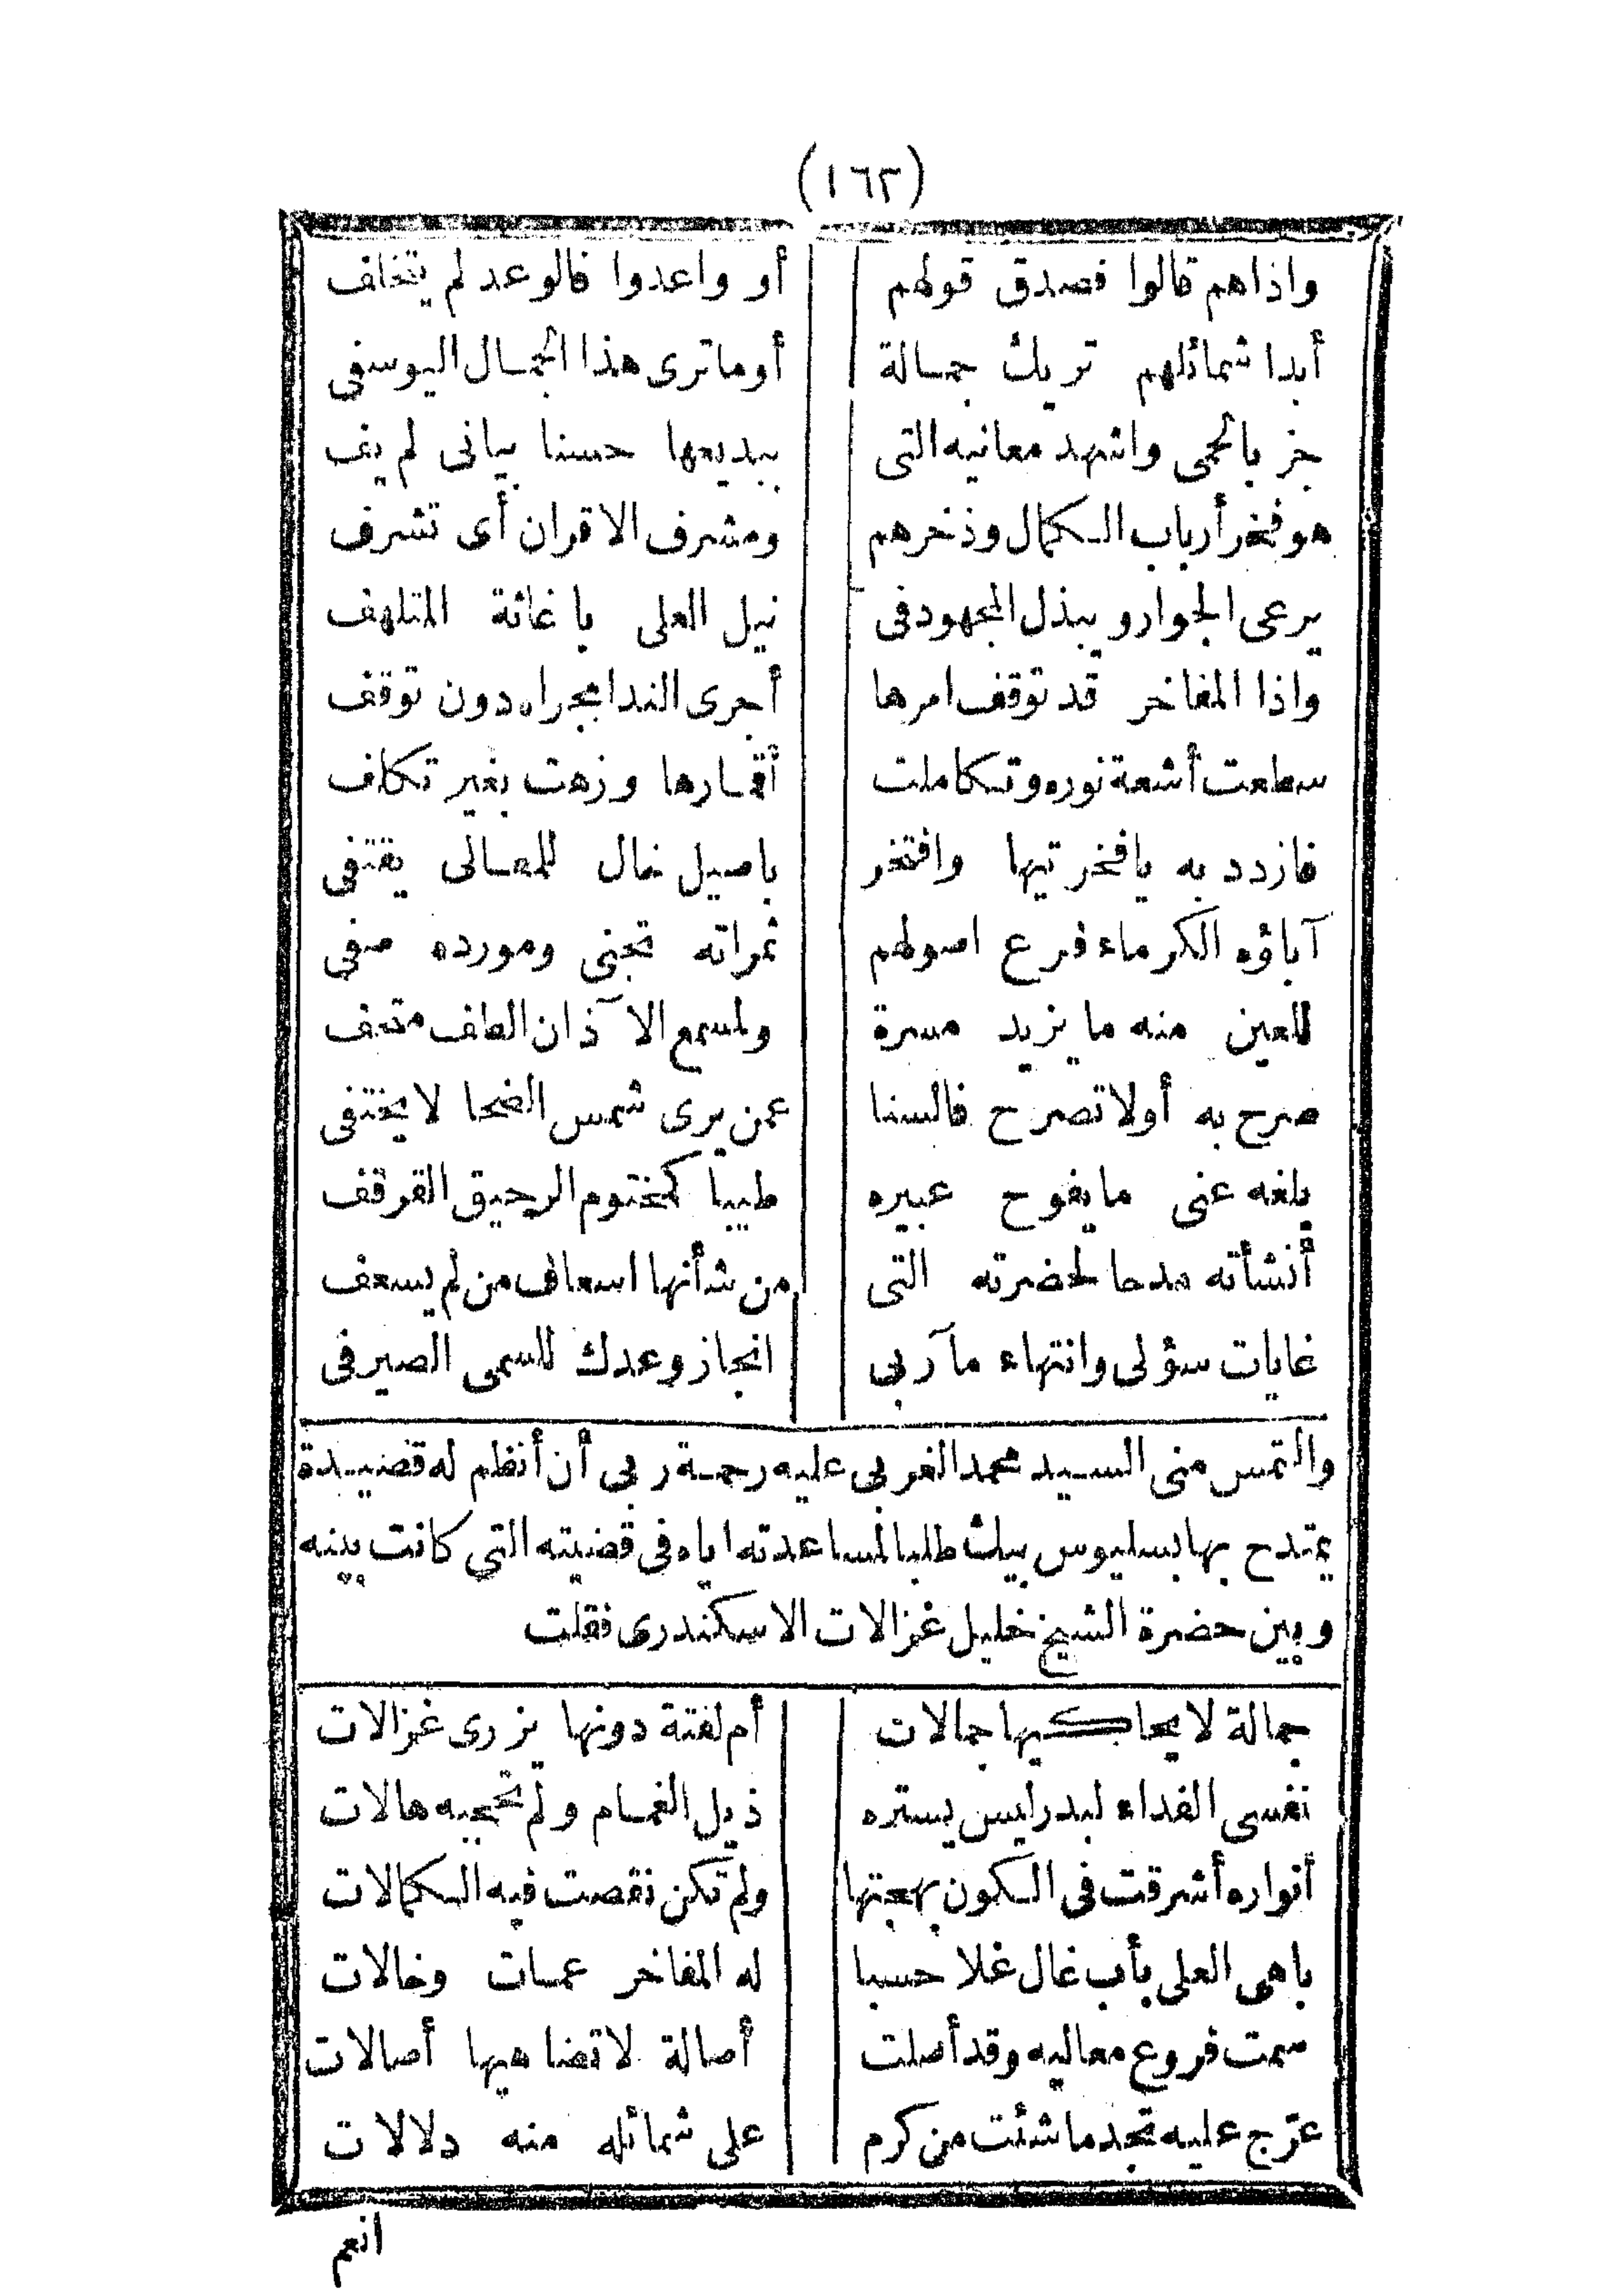 (١٦٢)
واذاهم قالوا فصدق قولهم أو واعدوا فالوعد لم يتخلف
أبدا شمائلهم تريك جمالة أوماترى هذا الجمال اليوسفى
جز بالحمى واشهد معانيه التى ببديعها حسنا بيانى لم يف
هو فخر أرباب الكمال وذخرهم ومشرف الاقران أى تشرف
يرعى الجوار ويبذل المجهود فى نيل العلى باغاثة المتلهف
واذا المفاخر قد توقف امرها أجرى الندا مجراه دون توقف
سطعت أشعة نوره وتكاملت أقمارها وزهت بغير تكلف
فازدد به يافخر تيها وافتخر باصيل خال للمعالى يقتفى
آباؤه الكرماء فرع اصولهم ثمراته تجنى ومورده صفى
للعين منه ما يزيد مسرة ولمسمع الآذان الطف متحف
صرح به أولا تصرح فالسنا عمن يرى شمس الضحا لا يختفى
بلغه عنى ما يفوح عبيره طيبا كمختوم الرحيق القرقف
أنشأته مدحا لحضرته التى من شأنها اسعاف من لم يسعف
غايات سؤلى وانتهاء مآربى انجاز وعدك للسمى الصيرفى
والتمس منى السيد محمد الغربى عليه رحمة ربى أن أنظم له قصيدة
يمتدح بها بسليوس بيك طلبا لمساعدته اياه فى قضيته التى كانت بينه
وبين حضرة الشيخ خليل غزالات الاسكندرى فقلت
جمالة لا يحاكيها جمالات أم لفتة دونها يزرى غزالات
نفسى الفداء لبدر ليس يستره ذيل الغمام ولم تحجبه هالات
أنواره أشرقت فى الكون بهجتها ولم تكن نقصت فيه الكمالات
باهى العلى بأب غال غلا حسبا له المفاخر عمات وخالات
سمت فروع معاليه وقد أصلت أصالة لا تضاهيها أصالات
عرّج عليه تجد ما شئت من كرم على شمائله منه دلالات
انعم